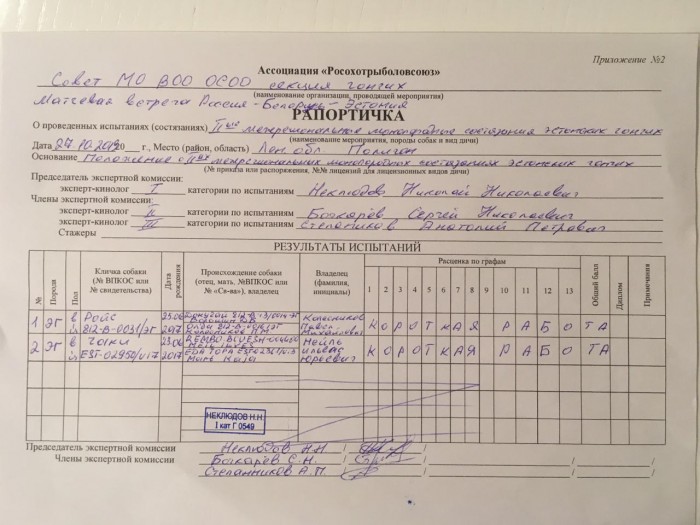 Приложение №2
Ассоциация «Росохотрыболовсоюз»
Совет МО ВОО ОСОО секция гончих
(наименование организации, проводящей мероприятия)
Матчевая встреча Россия - Беларусь - Эстония
РАПОРТИЧКА
О проведенных испытаниях (состязаниях) IIые межрегиональные монопородные состязания эстонских гончих
(наименование мероприятия, породы собак и вид дичи)
Дата 27.10.2019 г., Место (район, область) Лен обл Полигон
Основание Положение о IIых межрегиональных монопородных состязаниях эстонских гончих
(№ приказа или распоряжения, №№ лицензий для лицензионных видов дичи)
Председатель экспертной комиссии:
эксперт-кинолог I категории по испытаниям Неклюдов Николай Николаевич
Члены экспертной комиссии:
эксперт-кинолог II категории по испытаниям Божкарёв Сергей Николаевич
эксперт-кинолог III категории по испытаниям Степанников Анатолий Петрович
Стажеры
РЕЗУЛЬТАТЫ ИСПЫТАНИЙ
№ Порода Пол Кличка собаки (№ ВПКОС или № свидетельства) Дата рождения Происхождение собаки (отец, мать, №ВПКОС или № «Св-ва»), владелец Владелец (фамилия, инициалы) Расценка по графам 1 2 3 4 5 6 7 8 9 10 11 12 13 Общий балл Диплом Примечания
1 ЭГ в Ройс 812-В-0031/ЭГ 2017 Колесников Павел Михайлович КОРОТКАЯ РАБОТА
2 ЭГ в EST-02950/17 23.06 2017 Нейль Юрьевич КОРОТКАЯ РАБОТА
НЕКЛЮДОВ Н.Н.
I кат Г 0549
Председатель экспертной комиссии Неклюдов Н.Н. / /
Члены экспертной комиссии Божкарёв С.Н. / /
Степанников А.П. / /